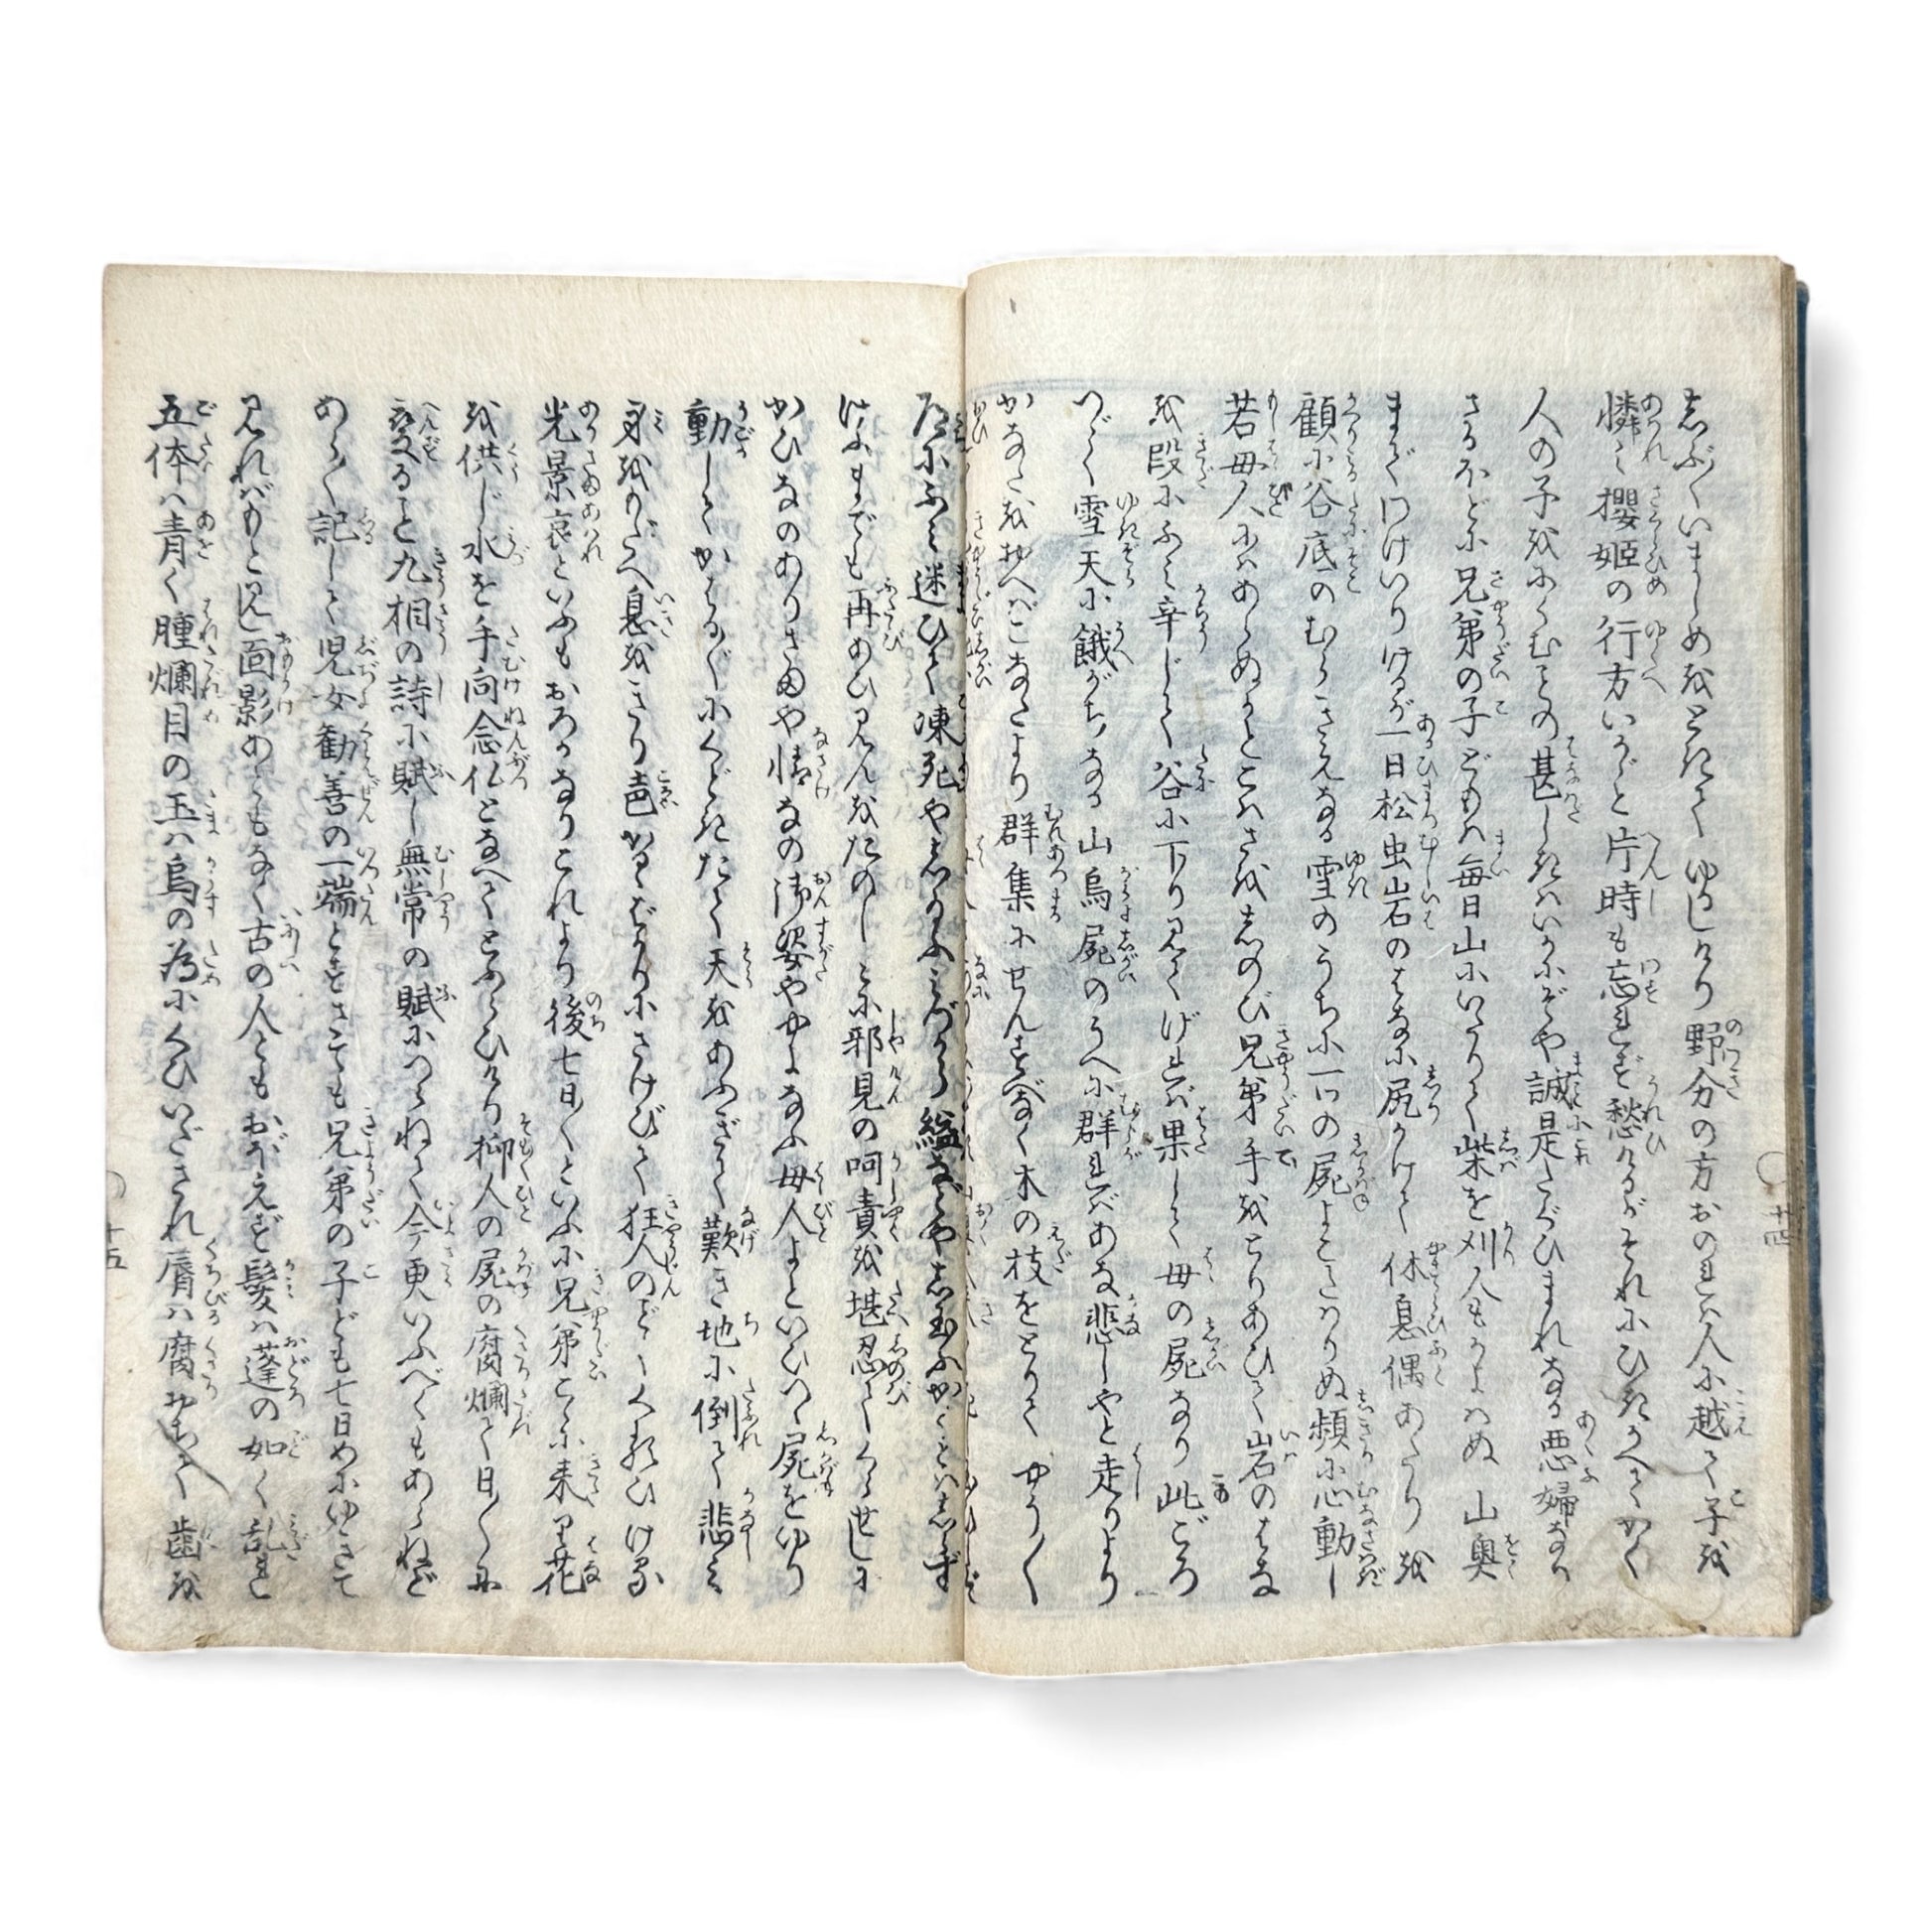 しば〳〵いましめをときてゆるしけり野分の方おのれは人に越て子を
憐み櫻姫の行方いかゞと片時も忘れず愁けるがそれにひきかへてかく
人の子をにくむことの甚しきはいかにぞや誠是たぐひまれなる悪婦なり
さるほどに兄弟の子どもは毎日山にいたりて柴を刈人もかよはぬ山奥
までわけいりけるが一日松虫岩のはなに尻かけて休息偶あたりを
顧に谷底のむかさえなる雪のうちに一つの屍よこたはりぬ頻に心動し
若母人にはあらぬかとこはさをしのび兄弟手をとりあひて岩のはな
を段にふみ辛じて谷に下り見てげれば果して母の屍なり此ごろ
つゞく雪天に餓がちなる山烏屍のうへに群ればあな悲しやと走りより
かなたをおへばこなたより群集にせんすべなく木の枝をとりてやう〳〵
道にふみ迷ひて凍死やしたまふみづから縊などやし玉ふかくとはしらず
けふまでも再あひ見んをたのしみに邪見の呵責を堪忍てくらせしに
かひなのありさまや情なの御姿ややよなふ母人よといひつゝ屍をゆり
動してかはる〴〵にくどきたて天をあふぎて歎き地に倒て悲み
身をもだへ息をきり声かるゝばかりにさけびて狂人のごとく歎ひける
光景哀といふもおろかなりこれより後七日〳〵といふに兄弟こゝに来り花
を供じ水を手向念仏となへてとふらひけり抑人の屍の腐爛て日〳〵に
変ること九相の詩に賦し無常の賦につらねて今更いふべくもあらねど
あら〳〵記して児女勧善の一端とすさても兄弟の子ども七日めにゆきて
見ればもと見し面影あともなく古の人ともおぼえず髪は蓬の如く乱れ
五体は青く腫爛目の玉は烏の為にくひいだされ脣は腐おちて歯を
十四
十五